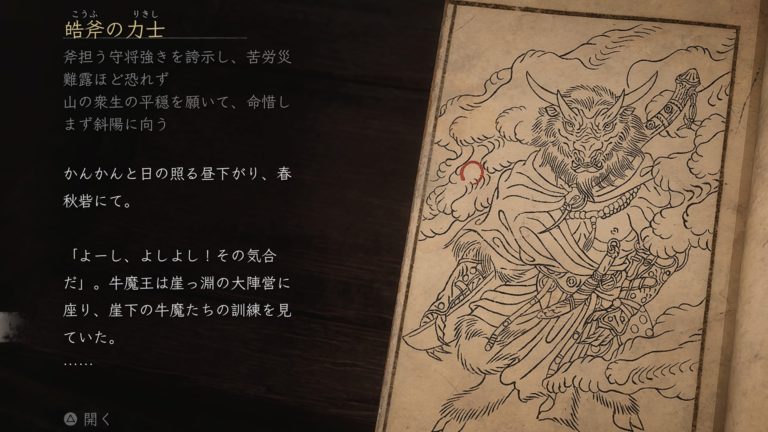 こうふ りきし
皓斧の力士
斧担う守将強きを誇示し、苦労災
難露ほど恐れず
山の衆生の平穏を願いて、命惜し
まず斜陽に向う
かんかんと日の照る昼下がり、春
秋砦にて。
「よーし、よしよし！その気合
だ」。牛魔王は崖っ淵の大陣営に
座り、崖下の牛魔たちの訓練を見
ていた。
……
開く